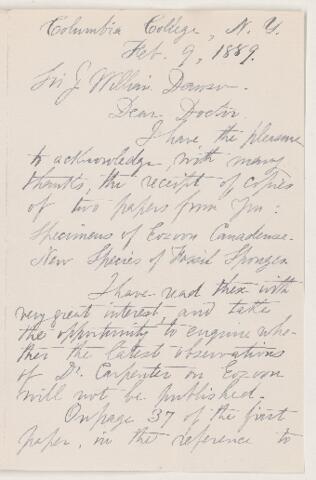 Columbia College, N. Y.
Feb. 9, 1889.
Sir J William Dawson.
Dear Doctor.
I have the pleasure
to acknowledge, with many
thanks, the receipt of copies
of two papers from you:
Specimens of Eozoon Canadense-
New Species of Fossil Sponges
I have read them with
very great interest, and take
the opportunity to enquire whe-
ther the latest observations
of Dr. Carpenter on Eozoon
will not be published.
On page 37 of the first
paper, in the reference to